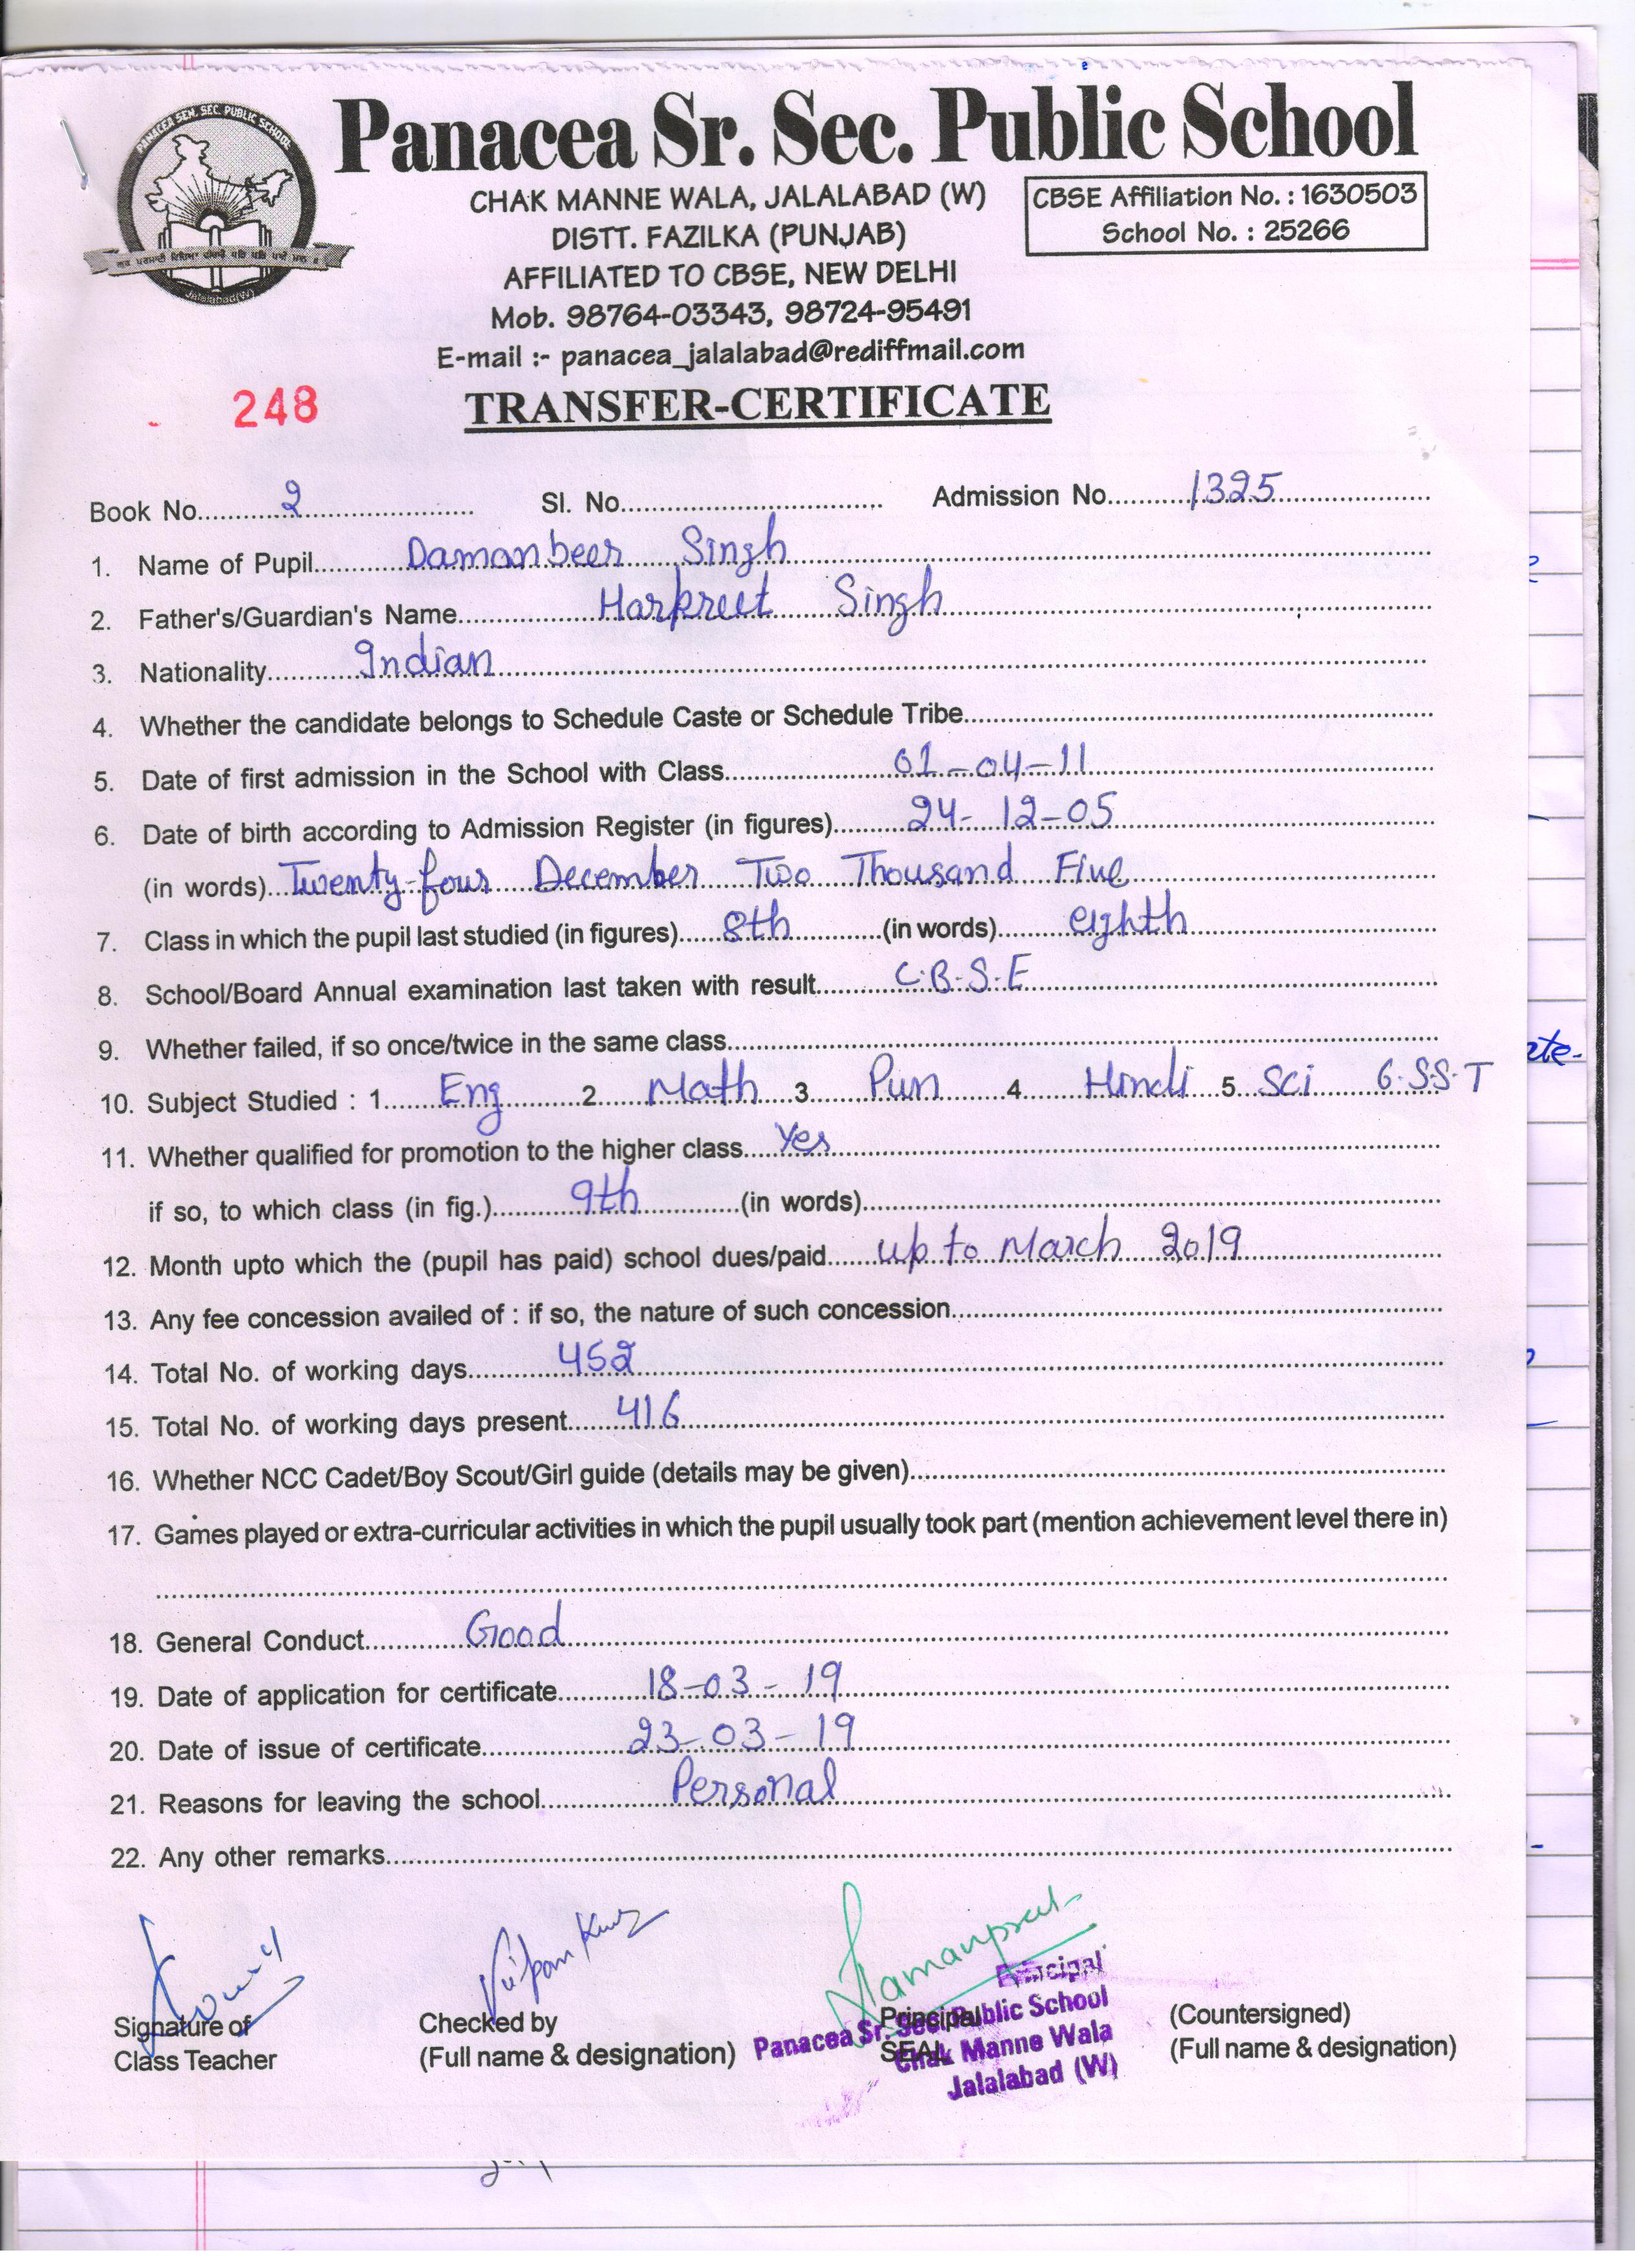 PANACEA SEN. SEC. PUBLIC SCHOOL
Jalalabad(W)
Panacea Sr. Sec. Public School
CHAK MANNE WALA, JALALABAD (W)
DISTT. FAZILKA (PUNJAB)
AFFILIATED TO CBSE, NEW DELHI
Mob. 98764-03343, 98724-95491
E-mail :- panacea_jalalabad@rediffmail.com
CBSE Affiliation No. : 1630503
School No. : 25266
248
TRANSFER-CERTIFICATE
Book No. 2 Sl. No. Admission No. 1325
1. Name of Pupil Damanbeer Singh
2. Father's/Guardian's Name Harkreet Singh
3. Nationality Indian
4. Whether the candidate belongs to Schedule Caste or Schedule Tribe
5. Date of first admission in the School with Class 01-04-11
6. Date of birth according to Admission Register (in figures) 24-12-05
(in words) Twenty-four December Two Thousand Five
7. Class in which the pupil last studied (in figures) 8th (in words) eighth
8. School/Board Annual examination last taken with result C.B.S.E
9. Whether failed, if so once/twice in the same class
10. Subject Studied : 1 Eng 2 Math 3 Pun 4 Hindi 5 Sci 6. S.S.T
11. Whether qualified for promotion to the higher class Yes
if so, to which class (in fig.) 9th (in words)
12. Month upto which the (pupil has paid) school dues/paid up to March 2019
13. Any fee concession availed of : if so, the nature of such concession
14. Total No. of working days 452
15. Total No. of working days present 416
16. Whether NCC Cadet/Boy Scout/Girl guide (details may be given)
17. Games played or extra-curricular activities in which the pupil usually took part (mention achievement level there in)
18. General Conduct Good
19. Date of application for certificate 18-03-19
20. Date of issue of certificate 23-03-19
21. Reasons for leaving the school Personal
22. Any other remarks
Signature of
Class Teacher
Checked by
(Full name & designation)
Principal
SEAL
Principal
Panacea Sr. Sec. Public School
Chak Manne Wala
Jalalabad (W)
(Countersigned)
(Full name & designation)